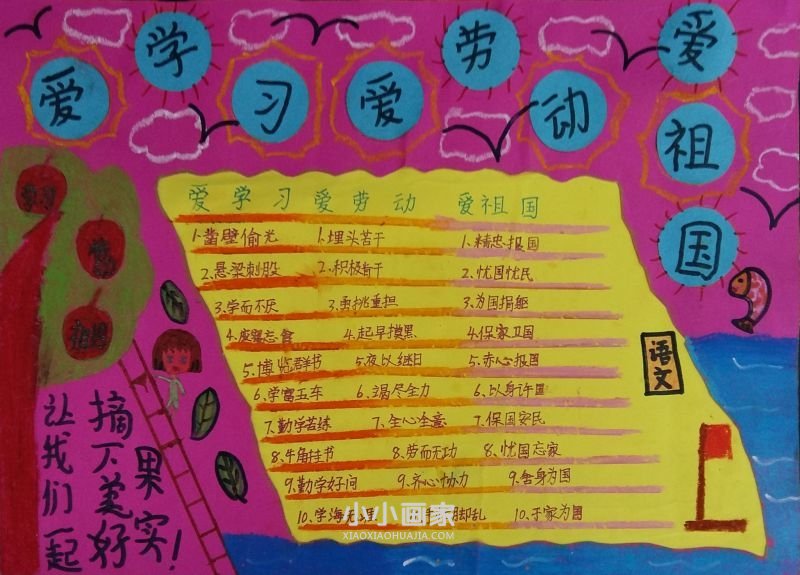 爱学习爱劳动爱祖国
爱学习 爱劳动 爱祖国
1.凿壁偷光 1.埋头苦干 1.精忠报国
2.悬梁刺股 2.积极肯干 2.忧国忧民
3.学而不厌 3.勇挑重担 3.为国捐躯
4.废寝忘食 4.起早摸黑 4.保家卫国
5.博览群书 5.夜以继日 5.赤心报国
6.学富五车 6.竭尽全力 6.以身许国
7.勤学苦练 7.全心全意 7.保国安民
8.牛角挂书 8.劳而无功 8.忧国忘家
9.勤学好问 9.齐心协力 9.舍身为国
10.学海无涯 脚乱 10.于家为国
语文
让我们一起
摘下美好
果实!
小小画家
XIAOXIAOHUAJIA.COM